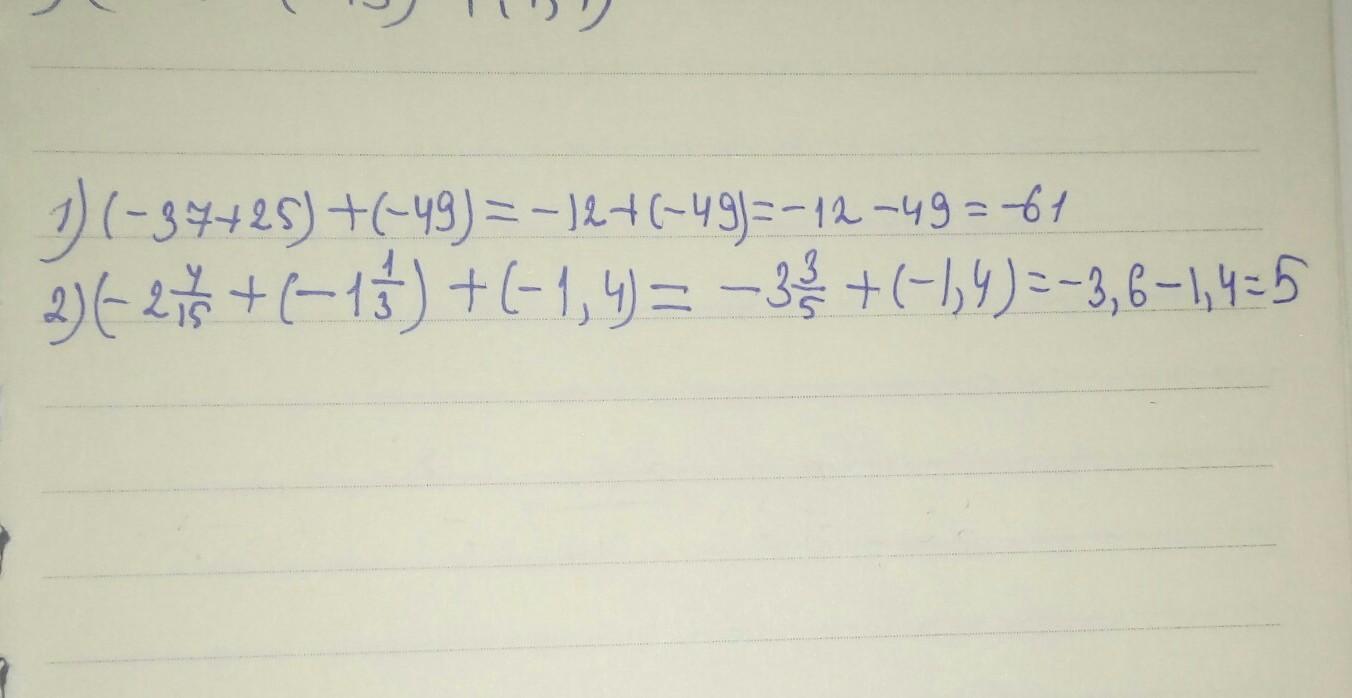 1) (-37+25)+(-49)=-12+(-49)=-12-49=-61
2) (-2 4/15 + (-1 1/3) + (-1,4) = -3 3/5 + (-1,4) = -3,6-1,4=5